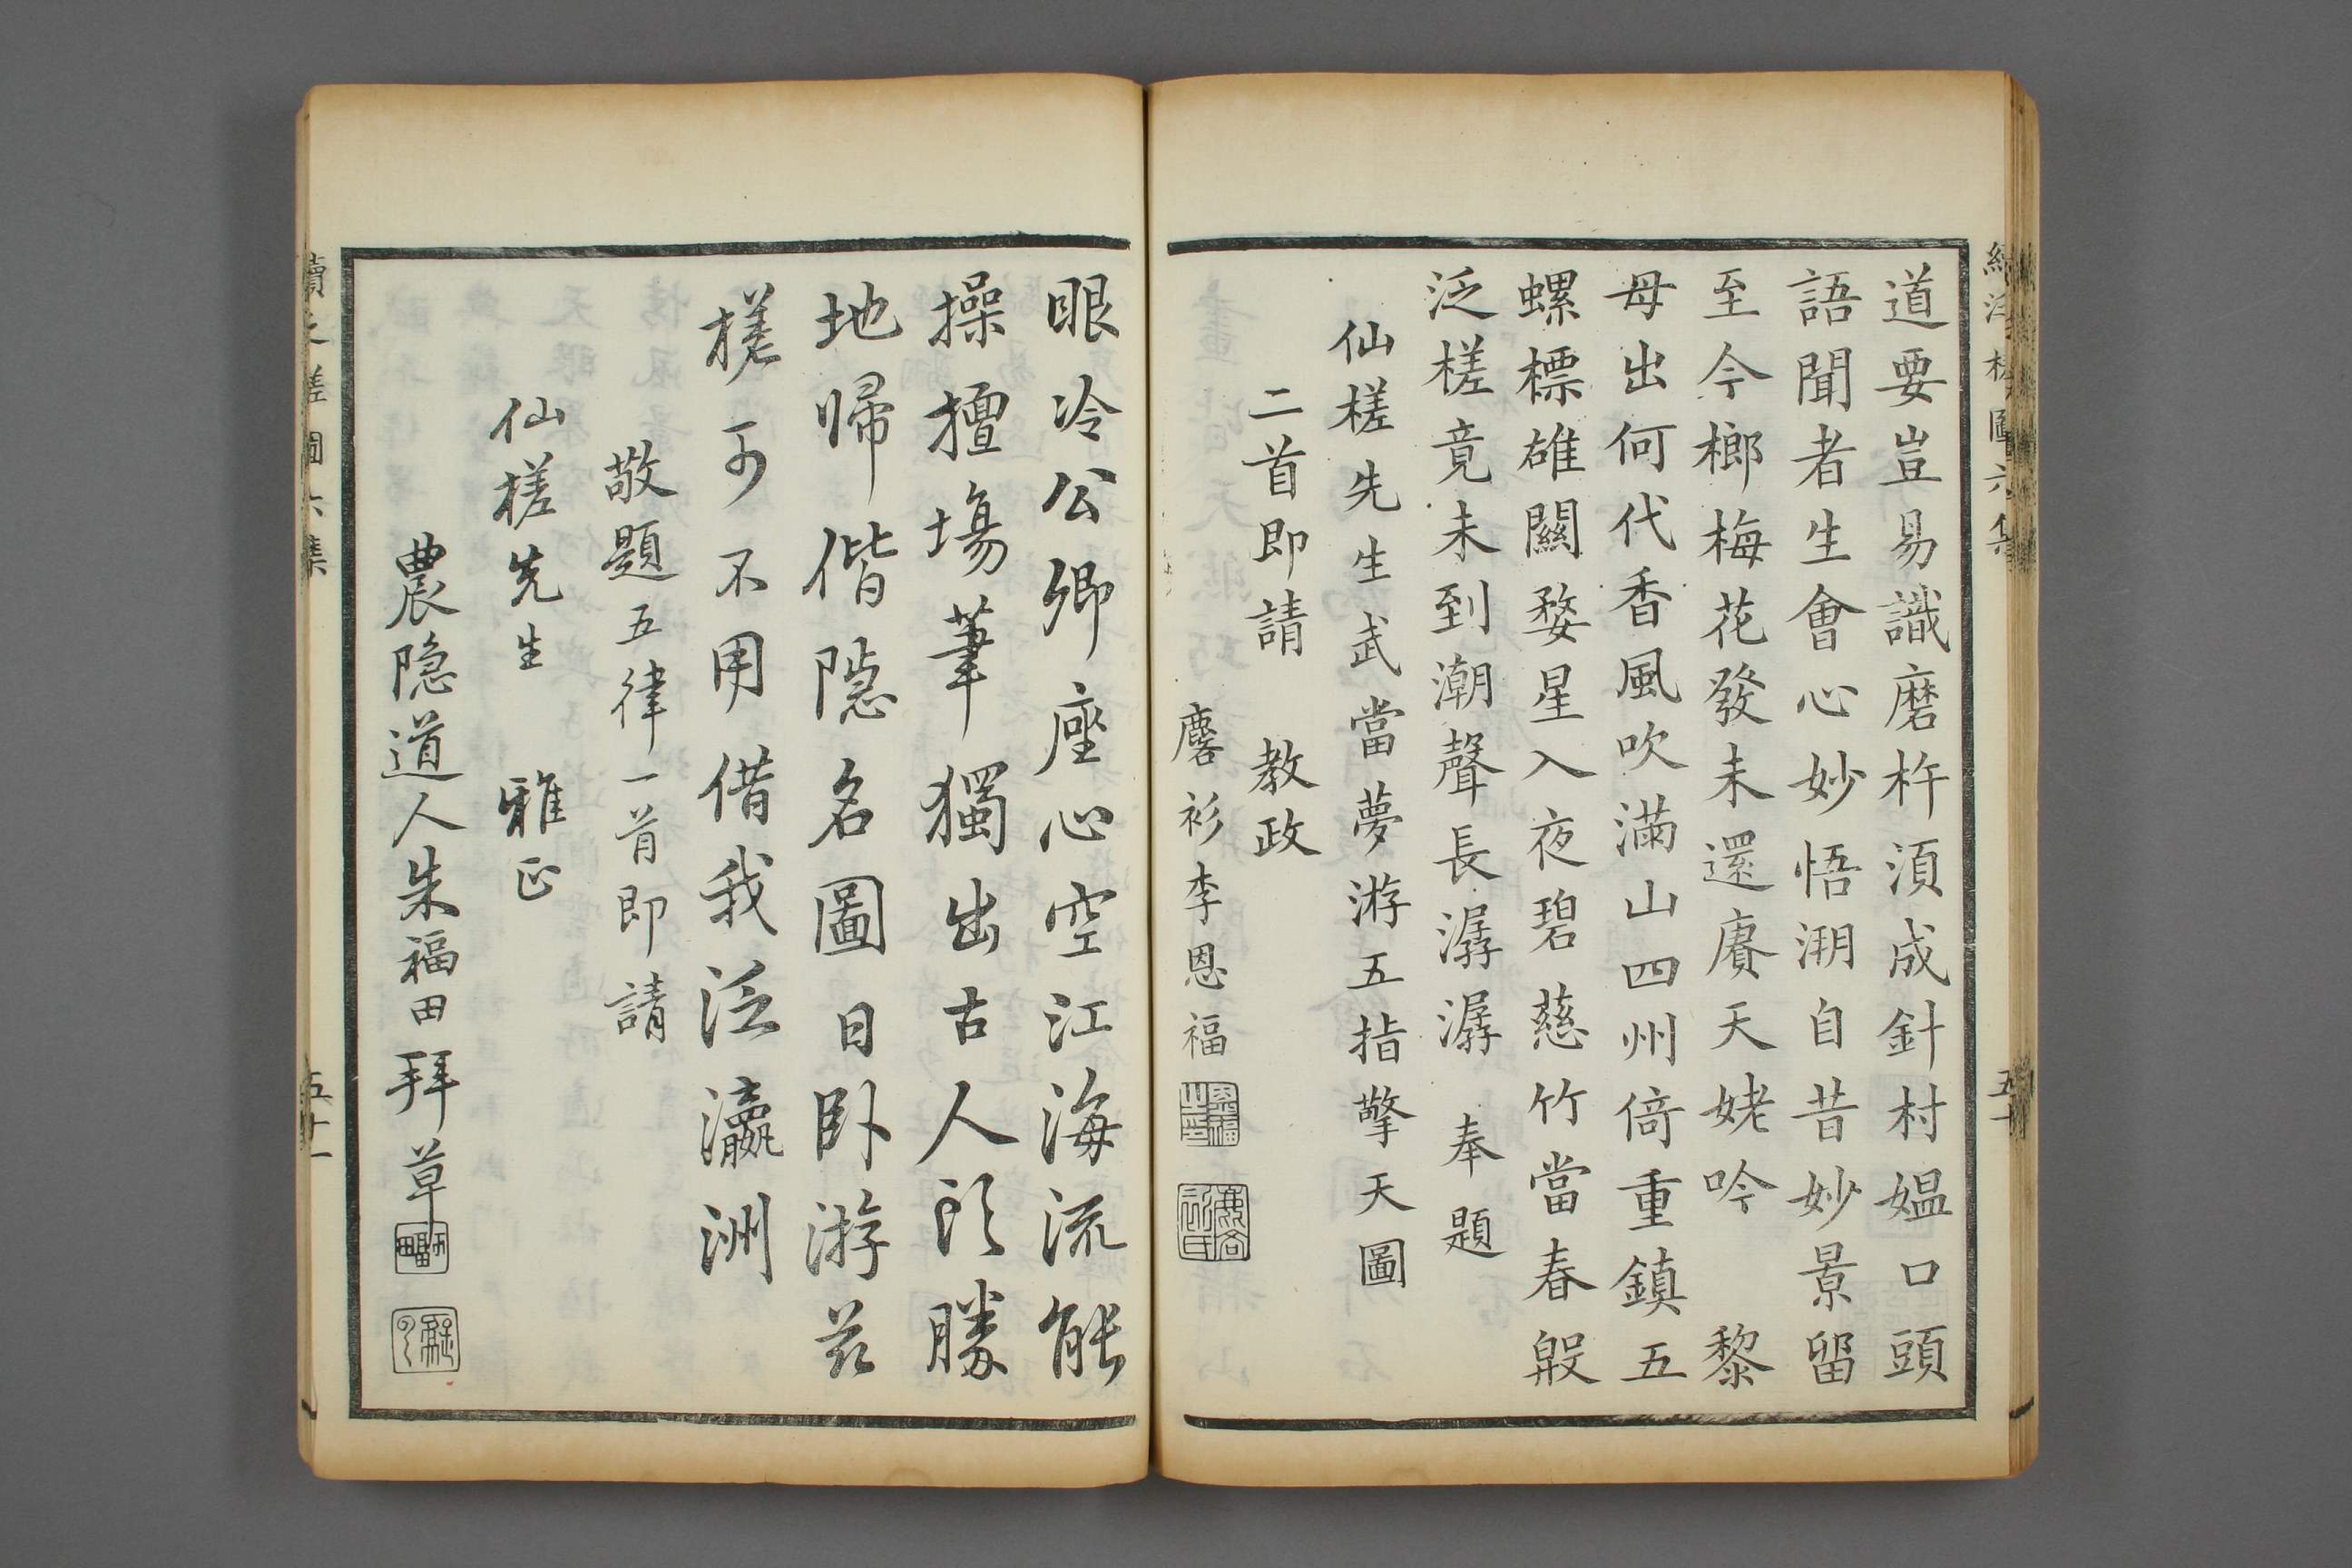 道要豈易識磨杵須成針村媪口頭
語聞者生會心妙悟溯自昔妙景留
至今榔梅花發未還賡天姥吟　黎
母出何代香風吹滿山四州倚重鎮五
螺標雄關婺星入夜碧慈竹當春殷
泛槎竟未到潮聲長潺潺　奉題
仙槎先生武當夢游五指擎天圖
二首即請　教政
麐衫李恩福
眼冷公卿座心空江海流能
操擅場筆獨出古人頭勝
地歸偕隱名圖日臥游茲
槎可不用借我泛瀛洲
敬題五律一首即請
仙槎先生　雅正
農隱道人朱福田拜草
續泛槎圖六集
五十一